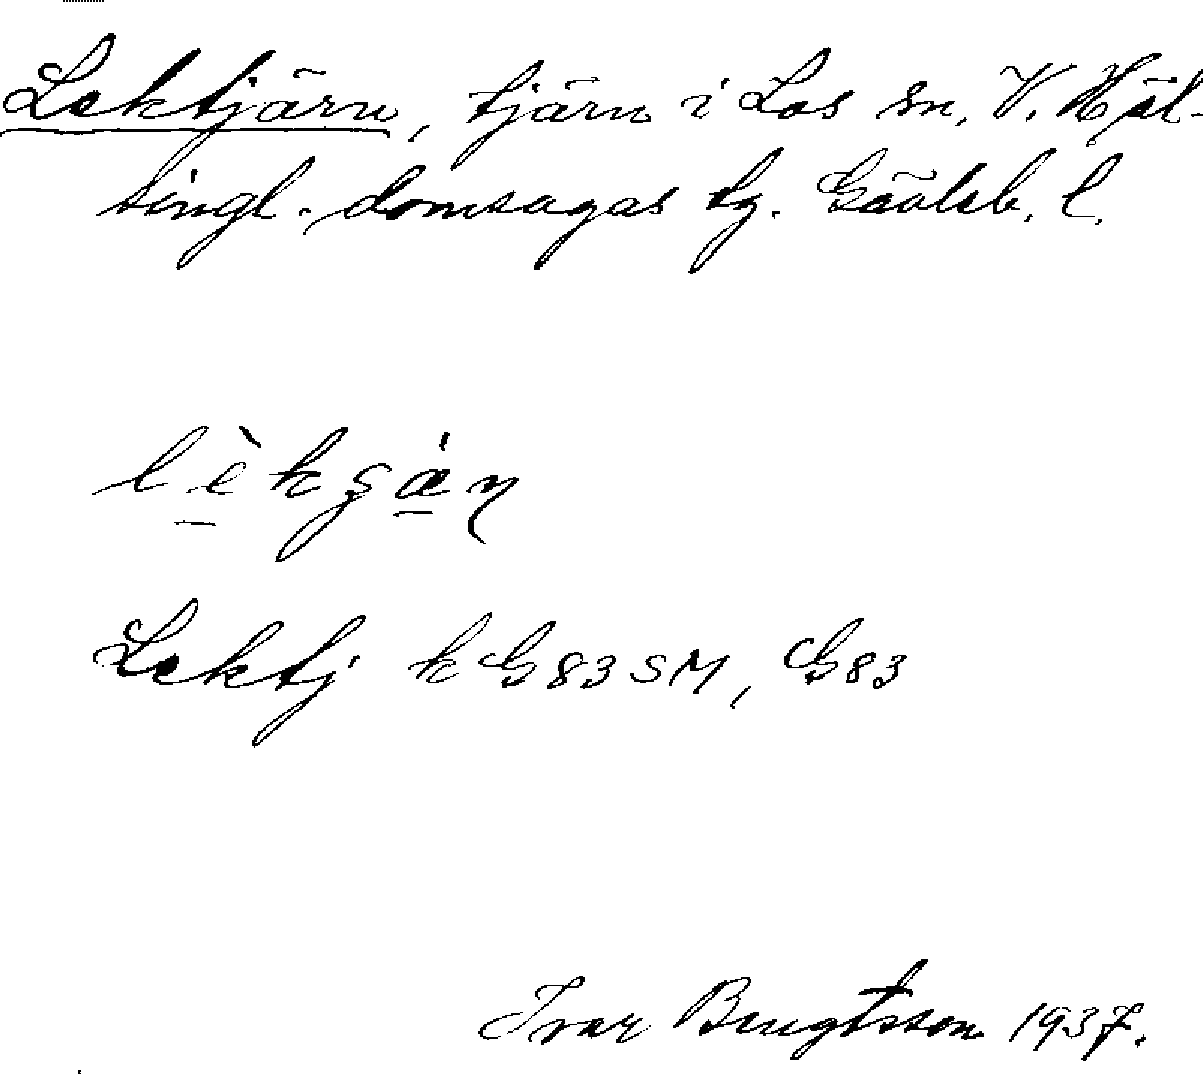 Lektjärn, tjärn i Los sn, V. Häl-
singl. domsagas tg. Gävleb. l.
lèkʂǽɳ
Lektj k G83SM, G83
Ivar Bengtsson 1937.